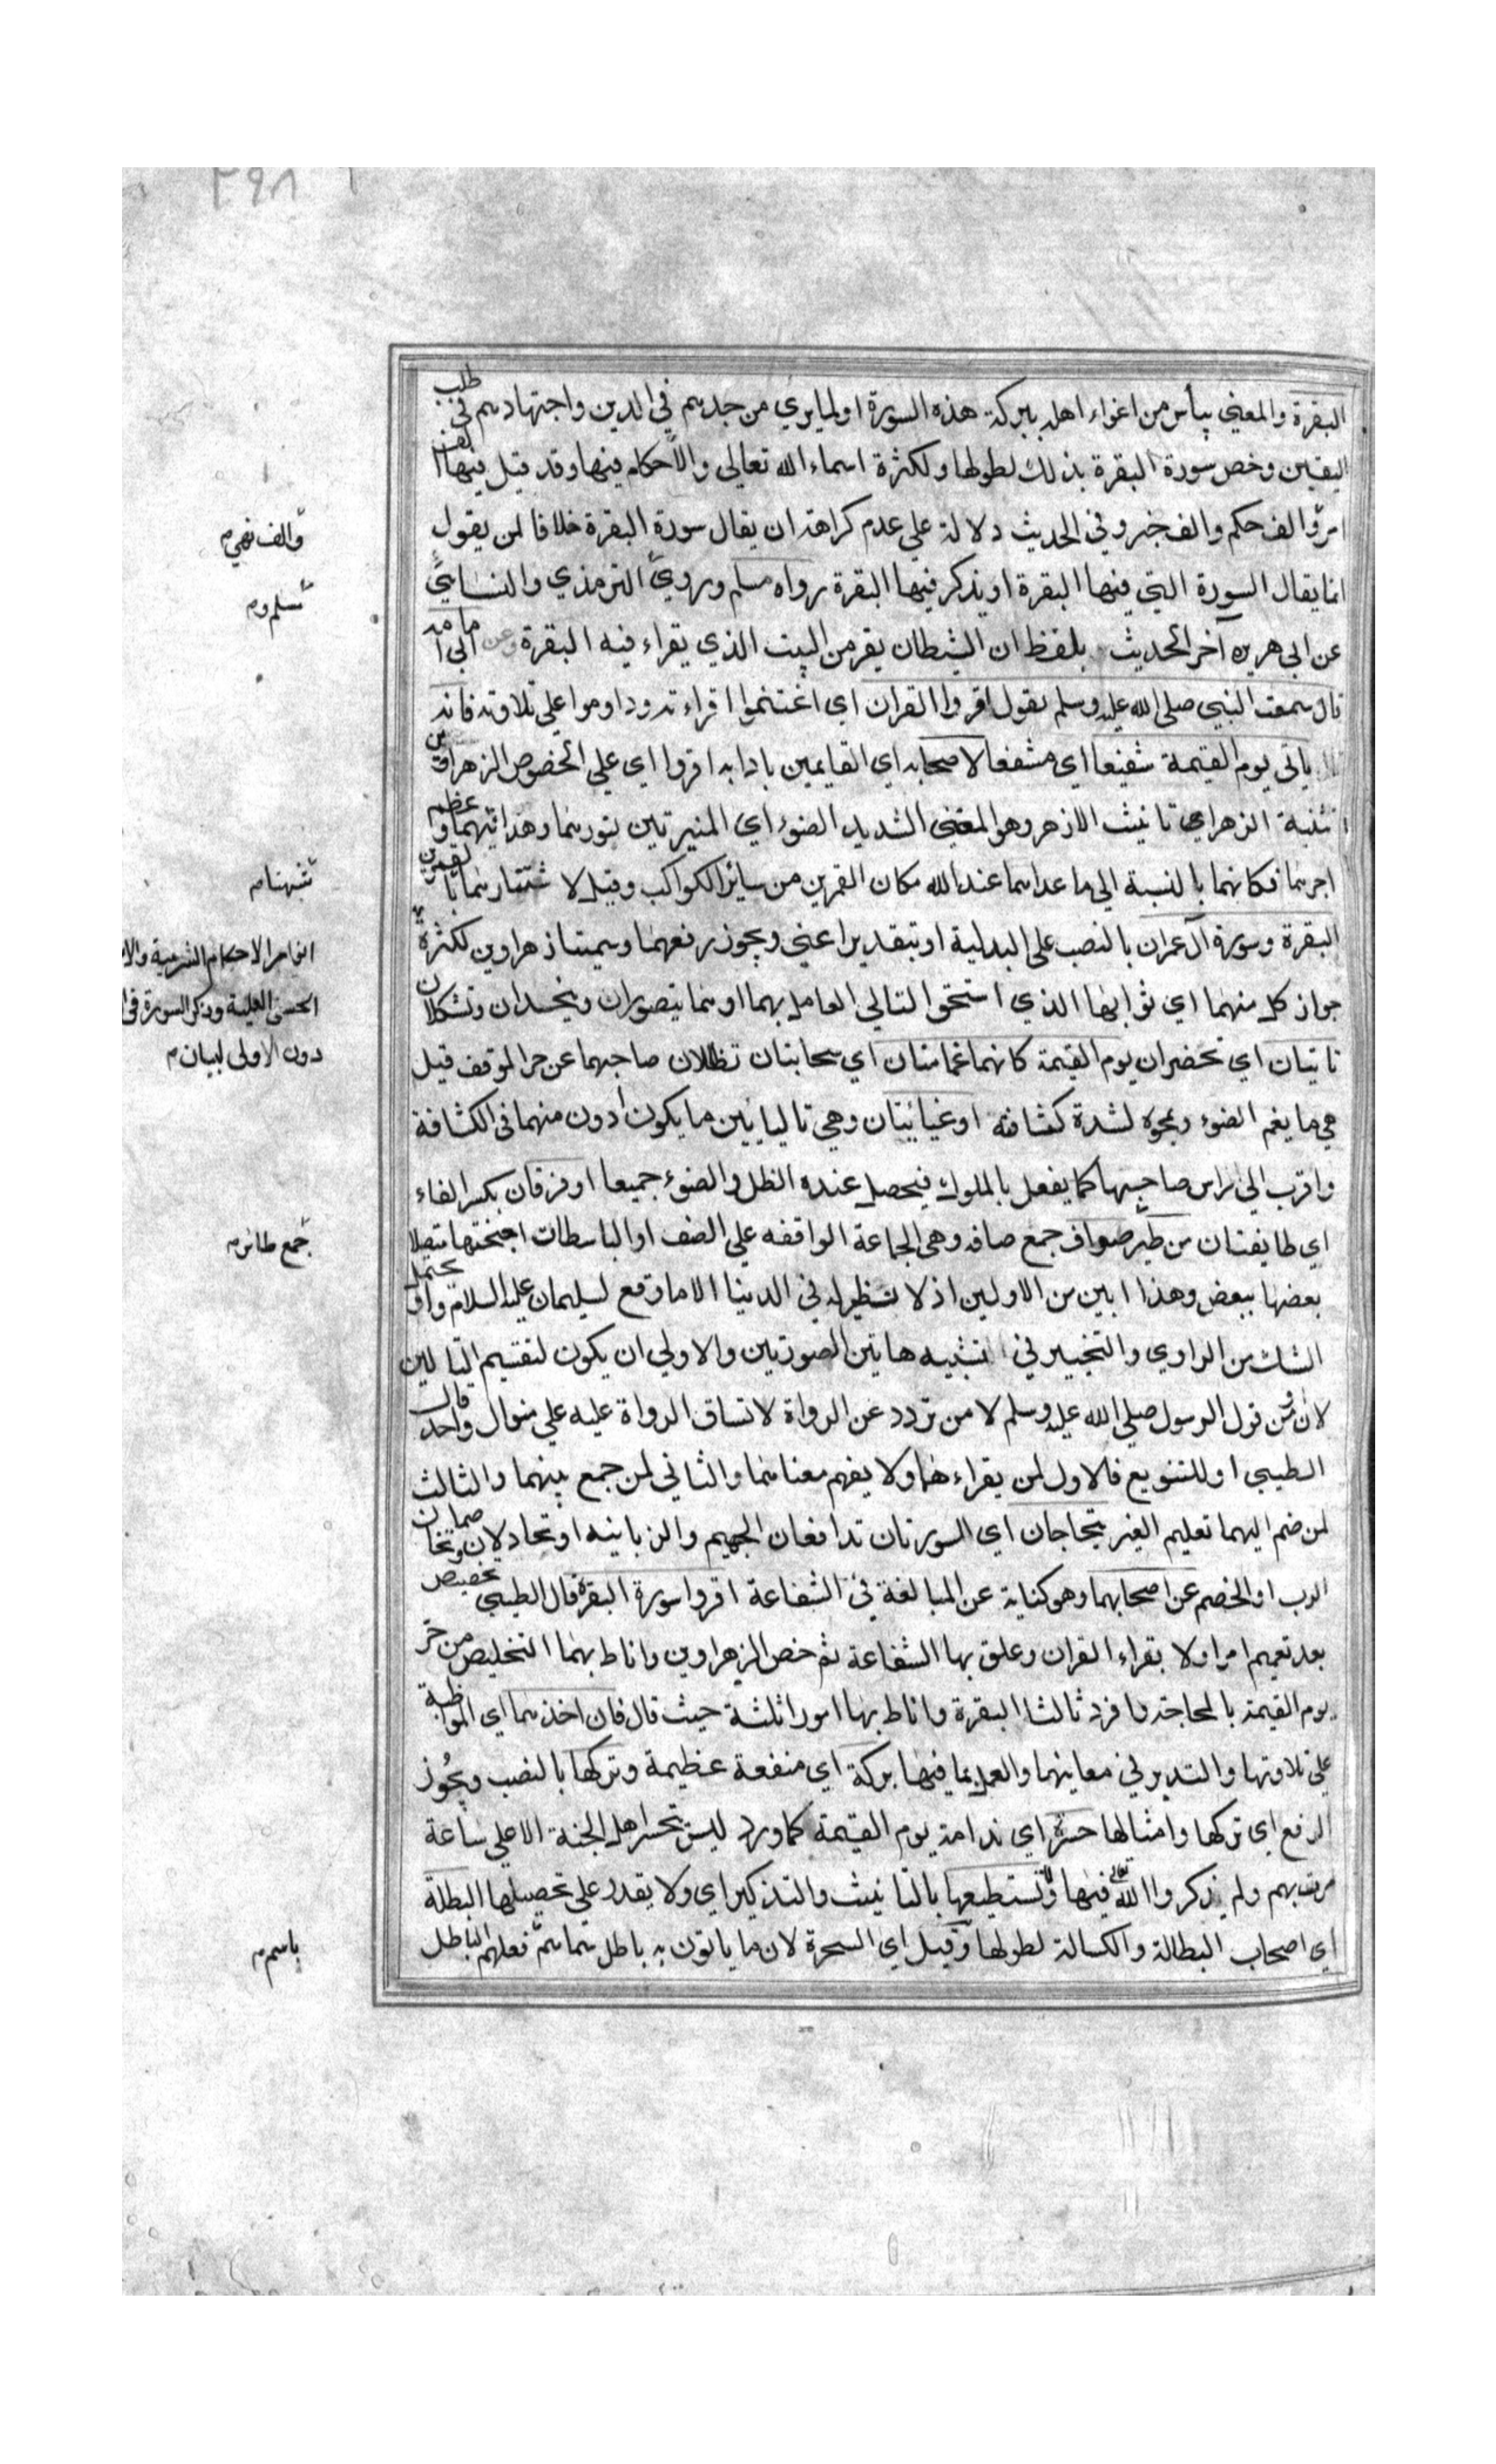 ٢٩٨
البقرة والمعني ييأس من اغواء اهله ببركة هذه السورة او لما يري من جدهم في الدين واجتهادهم في طلب
اليقين وخص سورة البقرة بذلك لطولها ولكثرة اسماء الله تعالي والاحكام فيها وقد قيل فيها الف
امر والف حكم والف خبر وفي الحديث دلالة علي عدم كراهة ان يقال سورة البقرة خلافا لمن يقول
والف نهي م
انما يقال السورة التي فيها البقرة او يذكر فيها البقرة رواه مسلم وروي الترمذي والنسايي
مسلم وم
عن ابي هريره آخر الحديث بلفظ ان الشيطان يفر من البيت الذي يقراء فيه البقرة وعن ابي امامه
قال سمعت النبي صلي الله عليه وسلم يقول اقروا القران اي اغتنموا قراءته ودا وموا علي تلاوته فانه
ياتي يوم القيمة شفيعا اي مشفعا لاصحابه اي القايمين بادابه اقروا اي علي الخصوص الزهراوين
تثنية الزهراي تانيث الازهر وهو المضي الشديد الضوء اي المنيرتين لنورهما وهدايتهما وعظم
اجرهما فكانهما بالنسبة الي ما عداهما عند الله مكان القمرين من سائر الكواكب وقيل لاشتهارهما بالقمرين
شبهتا م
البقرة وسورة آل عمران بالنصب علي البدلية او بتقدير اعني ويجوز رفعهما وسميتا زهراوين لكثرة
انوار الاحكام الشرعية والا
جواز كل منهما اي ثوابهما الذي استحق التالي العامل بهما او هما يتصوران ويتجسدان وتشكلان
الحسني العلية وذكر السورة في ا
تاتيان اي تحضران يوم القيمة كانهما غمامتان اي سحابتان تظللان صاحبهما عن حر الموقف قيل
دون الاولي لبيان م
هي ما يغم الضوء ويمحوه لشدة كثافته او غيايتان وهي تاليايين ما يكون ادون منهما في الكثافة
واقرب الي راس صاحبها كما يفعل بالملوك فيحصل عنده الظل والضوء جميعا او فرقان بكسر الفاء
اي طايفتان من طير صواف جمع صافه وهي الجماعة الواقفه علي الصف او الباسطات اجنحتها متصلا
جمع طائر م
بعضها ببعض وهذا ابين من الاولين اذ لا نظير له في الدنيا الا ما وقع لسليمان عليه السلام واو يحتمل
الشك من الراوي والتخيير في تشبيه هاتين الصورتين والاولي ان يكون لتقسيم التالين
لان او من قول الرسول صلي الله عليه وسلم لا من تردد عن الرواة لاتساق الرواة عليه علي منوال واحد قال
الطيبي او للتنويع فالاول لمن يقراءهما ولا يفهم معناهما والثاني لمن جمع بينهما والثالث
لمن ضم اليهما تعليم الغير تحاجان اي السورتان تدافعان الجحيم والزبانيه او تجادلان وتخاصمان
الرب او الخصم عن اصحابهما وهو كناية عن المبالغة في الشفاعة اقروا سورة البقرة قال الطيبي تخصيص
بعد تعميم امر اولا بقراءة القران وعلق بها الشفاعة ثم خص الزهراوين واناط بهما التخليص من حر
يوم القيمة بالمحاجة وافرد ثالثا البقرة واناط بها امورا ثلثة حيث قال فان اخذها اي المواظبة
علي تلاوتها والتدبر في معانيها والعمل بما فيها بركة اي منفعة عظيمة وتركها بالنصب ويجوز
الرفع اي تركها وامثالها حسرة اي ندامة يوم القيمة كما ورد ليس تحسر اهل الجنة الا علي ساعة
مرت بهم ولم يذكروا الله تعالى فيها ولا تستطيعها بالتانيث والتذكير اي ولا يقدر علي تحصيلها البطلة
اي اصحاب البطالة والكسالة لطولها وقيل اي السحرة لان ما ياتون به باطل سماهم فعلهم الباطل
باسم م